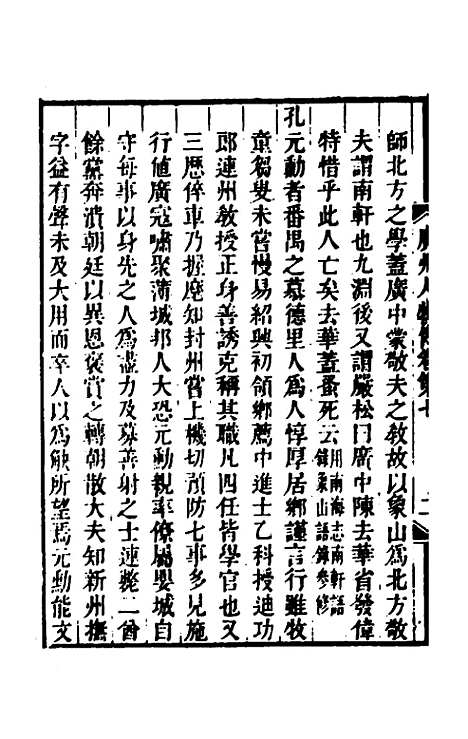 師北方之學蓋廣中蒙敬夫之教故以象山爲北方敬
夫謂南軒也九淵後又謂嚴松曰廣中陳去華省發偉
特惜乎此人亡矣去華蓋蚤死云用南海志南軒語錄象山語錄參修
孔元勳者番禺之慕德里人爲人惇厚居鄉謹言行雖牧
童芻叟未嘗慢易紹興初領鄉薦中進士乙科授迪功
郎連州教授正身善誘克稱其職凡四任皆學官也又
三歷倅車乃握麾知封州嘗上機切預防七事多見施
行値廣寇嘯聚蒲城邦人大恐元勳親率僚屬嬰城自
守每事以身先之人爲盡力及募善射之士連斃二酋
餘黨奔潰朝廷以異恩褒賞之轉朝散大夫知新州撫
字益有聲未及大用而卒人以爲缺所望焉元勳能文
廣州人物傳卷第七